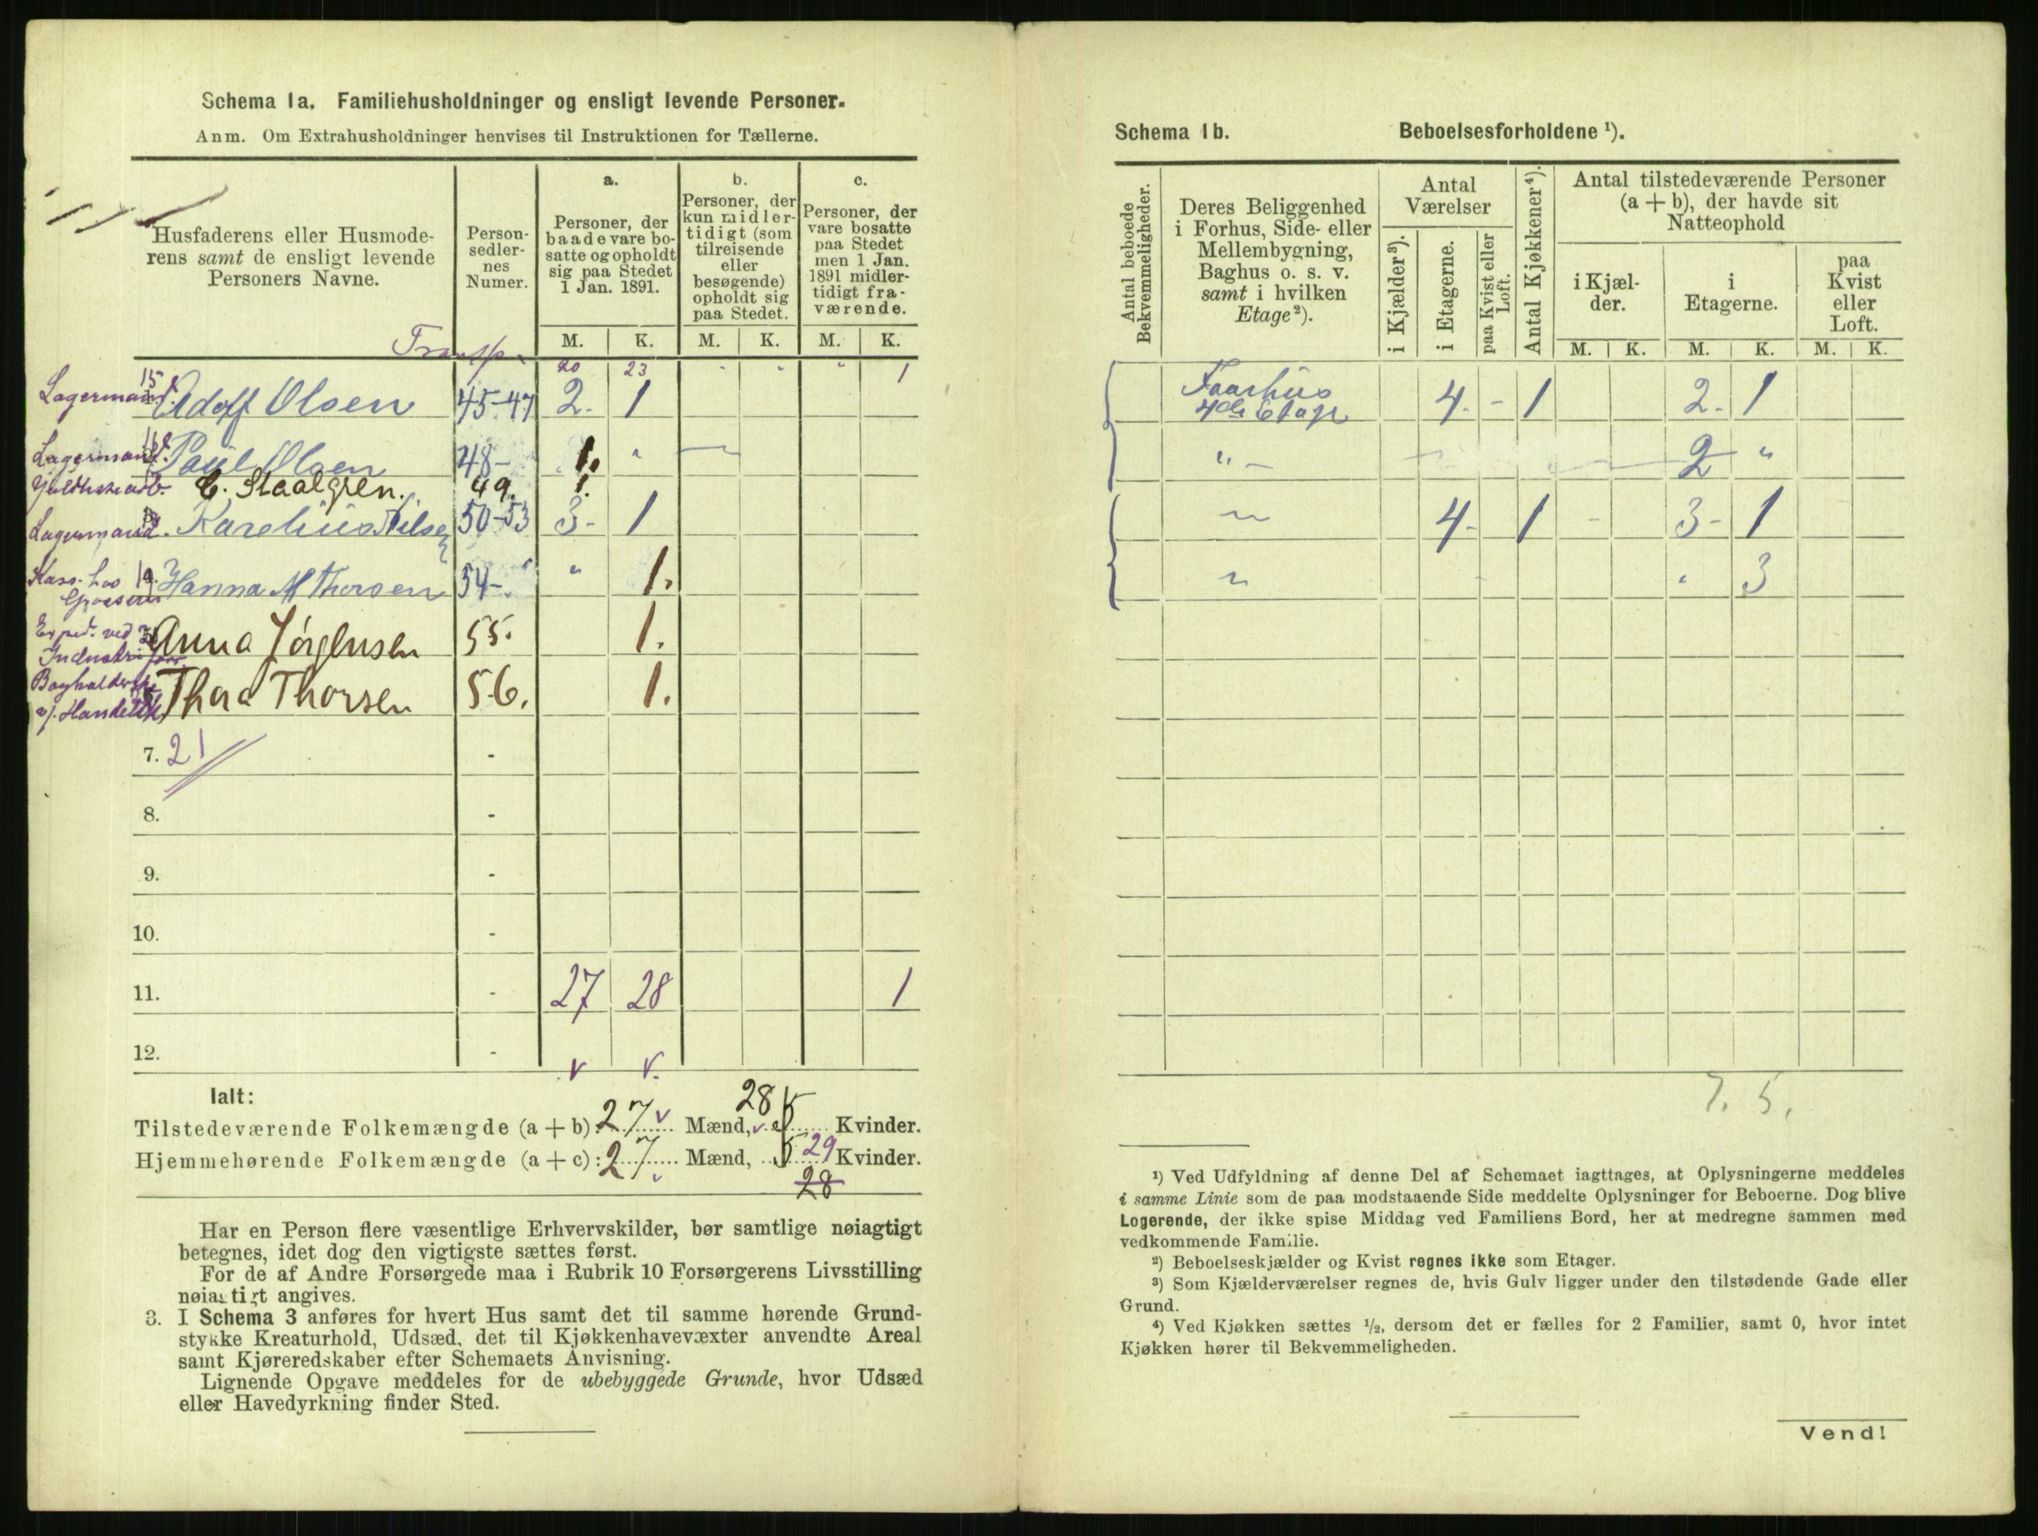 Schema 1a. Familiehusholdninger og ensligt levende Personer.
Anm. Om Extrahusholdninger henvises til Instruktionen for Tællerne.
Husfaderens eller Husmoderens samt de ensligt levende Personers Navne.
Person-sedler-nes Numer.
a.
Personer, der baade vare bosatte og opholdt sig paa Stedet 1 Jan. 1891.
b.
Personer, der kun midlertidigt (som tilreisende eller besøgende) opholdt sig paa Stedet.
c.
Personer, der vare bosatte paa Stedet men 1 Jan. 1891 midlertidigt fraværende.
M. K. M. K. M. K.
Transp. 20 23 " " " 1
Lagermand 15 Adolf Olsen 45-47 2. 1
Lagermand. Paul Olsen 48- 1. "
C. Staalgren. 49. 1.
Lagermand. Karelius Nilsen 50-53 3- 1
Kass. hos 19. Hanna M Thorsen 54- " 1.
Exped. ved Anna Jørgensen 55. 1.
Thora Thorsen 56. 1.
7. 21 -
8. -
9. -
10. -
11. - 27 28 1
12. - v v.
Ialt:
Tilstedeværende Folkemængde (a + b): 27 v Mænd, v 28 5 Kvinder.
Hjemmehørende Folkemængde (a + c): 27 v Mænd, 5 29 Kvinder.
28
Har en Person flere væsentlige Erhvervskilder, bør samtlige nøiagtigt
betegnes, idet dog den vigtigste sættes først.
For de af Andre Forsørgede maa i Rubrik 10 Forsørgerens Livsstilling
nøiagtigt angives.
3. I Schema 3 anføres for hvert Hus samt det til samme hørende Grund-
stykke Kreaturhold, Udsæd, det til Kjøkkenhavevæxter anvendte Areal
samt Kjøreredskaber efter Schemaets Anvisning.
Lignende Opgave meddeles for de ubebyggede Grunde, hvor Udsæd
eller Havedyrkning finder Sted.
Schema 1b. Beboelsesforholdene ¹).
Antal beboede Bekvemmeligheder.
Deres Beliggenhed i Forhus, Side- eller Mellembygning, Baghus o. s. v. samt i hvilken Etage²).
Antal Værelser
i Kjælder³).
i Etagerne.
paa Kvist eller Loft.
Antal Kjøkkener⁴).
Antal tilstedeværende Personer (a + b), der havde sit Natteophold
i Kjælder.
i Etagerne.
paa Kvist eller Loft.
M. K. M. K. M. K.
4de Etage 4. - 1 2. 1
" - 2 "
" 4- 1 - 3- 1
" " 3
7. 5.
¹) Ved Udfyldning af denne Del af Schemaet iagttages, at Oplysningerne meddeles
i samme Linie som de paa modstaaende Side meddelte Oplysninger for Beboerne. Dog blive
Logerende, der ikke spise Middag ved Familiens Bord, her at medregne sammen med
vedkommende Familie.
²) Beboelseskjælder og Kvist regnes ikke som Etager.
³) Som Kjælderværelser regnes de, hvis Gulv ligger under den tilstødende Gade eller
Grund.
⁴) Ved Kjøkken sættes ½, dersom det er fælles for 2 Familier, samt 0, hvor intet
Kjøkken hører til Bekvemmeligheden.
Vend!